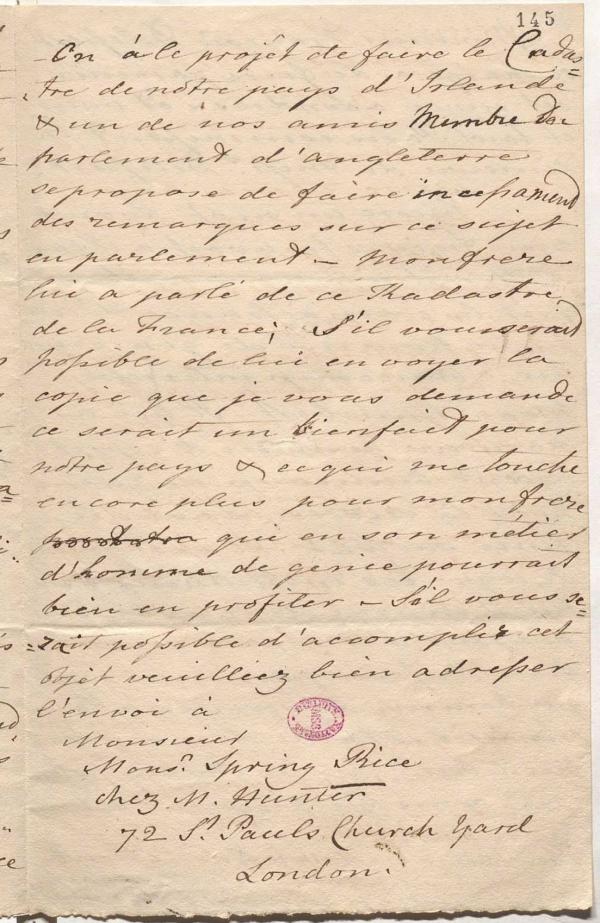 145
- On á le projêt de faire le Cadas=
tre de nôtre pays d'Irlande
& un de nos amis Membre du
parlement d'angleterre
se propose de faire incessament
des remarques sur ce sujet
en parlement - Mon frere
lui a parlé de ce Kadastre
de la France; S'il vous serait
possible de lui envoyer la
copie que je vous demande
ce serait un bienfait pour
nôtre pays & ce qui me touche
encore plus pour mon frere
qui en son métier
d'homme de genie pourrait
bien en profiter - S'il vous se=
=rait possible d'accomplir cet
objet veuilliez bien adresser
l'envoi à
Monsieur
Monsr. Spring Rice
chez M. Hunter
72 St. Pauls Church Yard
London.